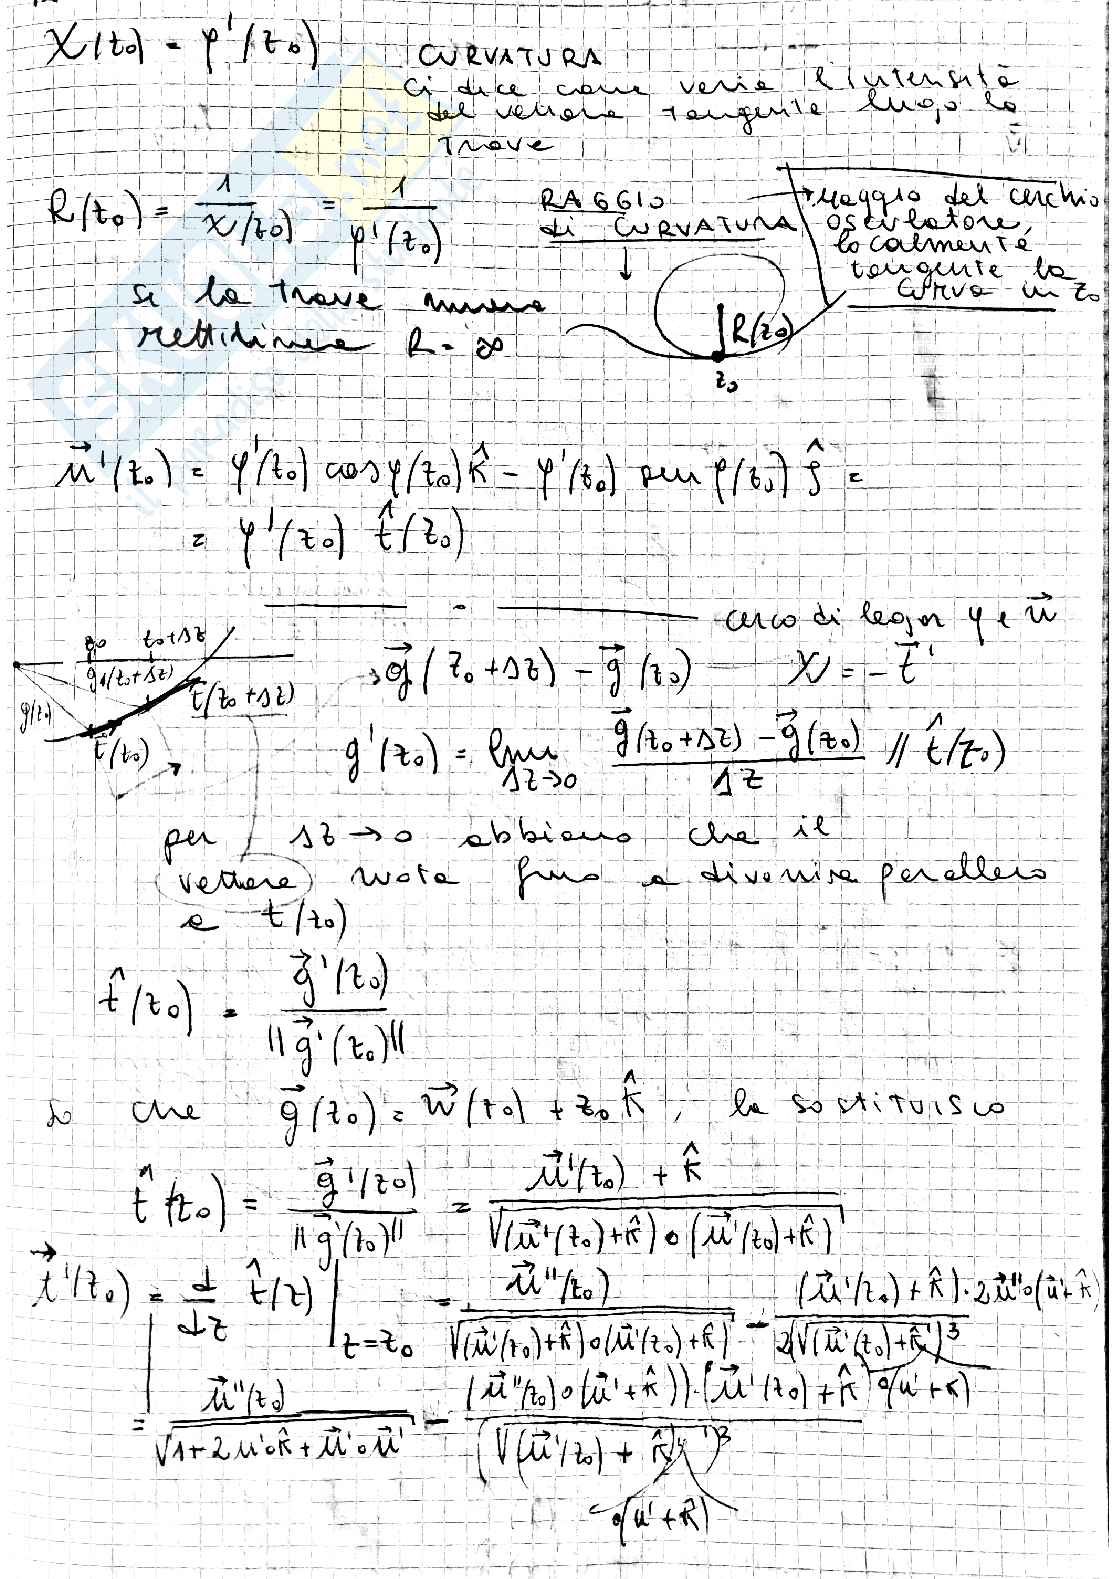 χ(z₀) = φ'(z₀)
CURVATURA
Ci dice come varia l'intensità
del vettore tangente lungo la
trave
R(z₀) = 1/χ(z₀) = 1/φ'(z₀)
RAGGIO
di CURVATURA
→ raggio del cerchio
osculatore,
localmente
tangente la
curva in z₀
se la trave
rettilinea R = ∞
R(z₀)
z₀
n⃗'(z₀) = φ'(z₀) cos φ(z₀) k̂ - φ'(z₀) sen φ(z₀) ĵ =
= φ'(z₀) t̂(z₀)
cerco di legar φ e u⃗
z₀ z₀+Δz
g(z₀+Δz)
g(z₀)
t(z₀+Δz)
t(z₀)
→ g⃗(z₀+Δz) - g⃗(z₀) χ = -t⃗'
g'(z₀) = lim Δz→0 (g⃗(z₀+Δz) - g⃗(z₀))/Δz // t̂(z₀)
per Δz → 0 abbiamo che il
vettore ruota fino a divenire parallelo
a t(z₀)
t̂(z₀) = g⃗'(z₀)/||g⃗'(z₀)||
so che g⃗(z₀) = u⃗(z₀) + z₀ k̂, la sostituisco
t̂(z₀) = g⃗'(z₀)/||g⃗'(z₀)|| = (u⃗'(z₀) + k̂)/√((u⃗'(z₀)+k̂)∘(u⃗'(z₀)+k̂))
t⃗'(z₀) = d/dz t̂(z)|z=z₀ = u⃗''(z₀)/√((u⃗'(z₀)+k̂)∘(u⃗'(z₀)+k̂)) - (u⃗'(z₀)+k̂)·2u⃗''∘(u⃗'+k̂)/2(√(u⃗'(z₀)+k̂)∘(u'+k))³
= u⃗''(z₀)/√(1+2u'∘k̂+u⃗'∘u⃗') - (u⃗''(z₀)∘(u⃗'+k̂))·(u⃗'(z₀)+k̂)/(√(u⃗'(z₀)+k̂)∘(u'+k̂))³